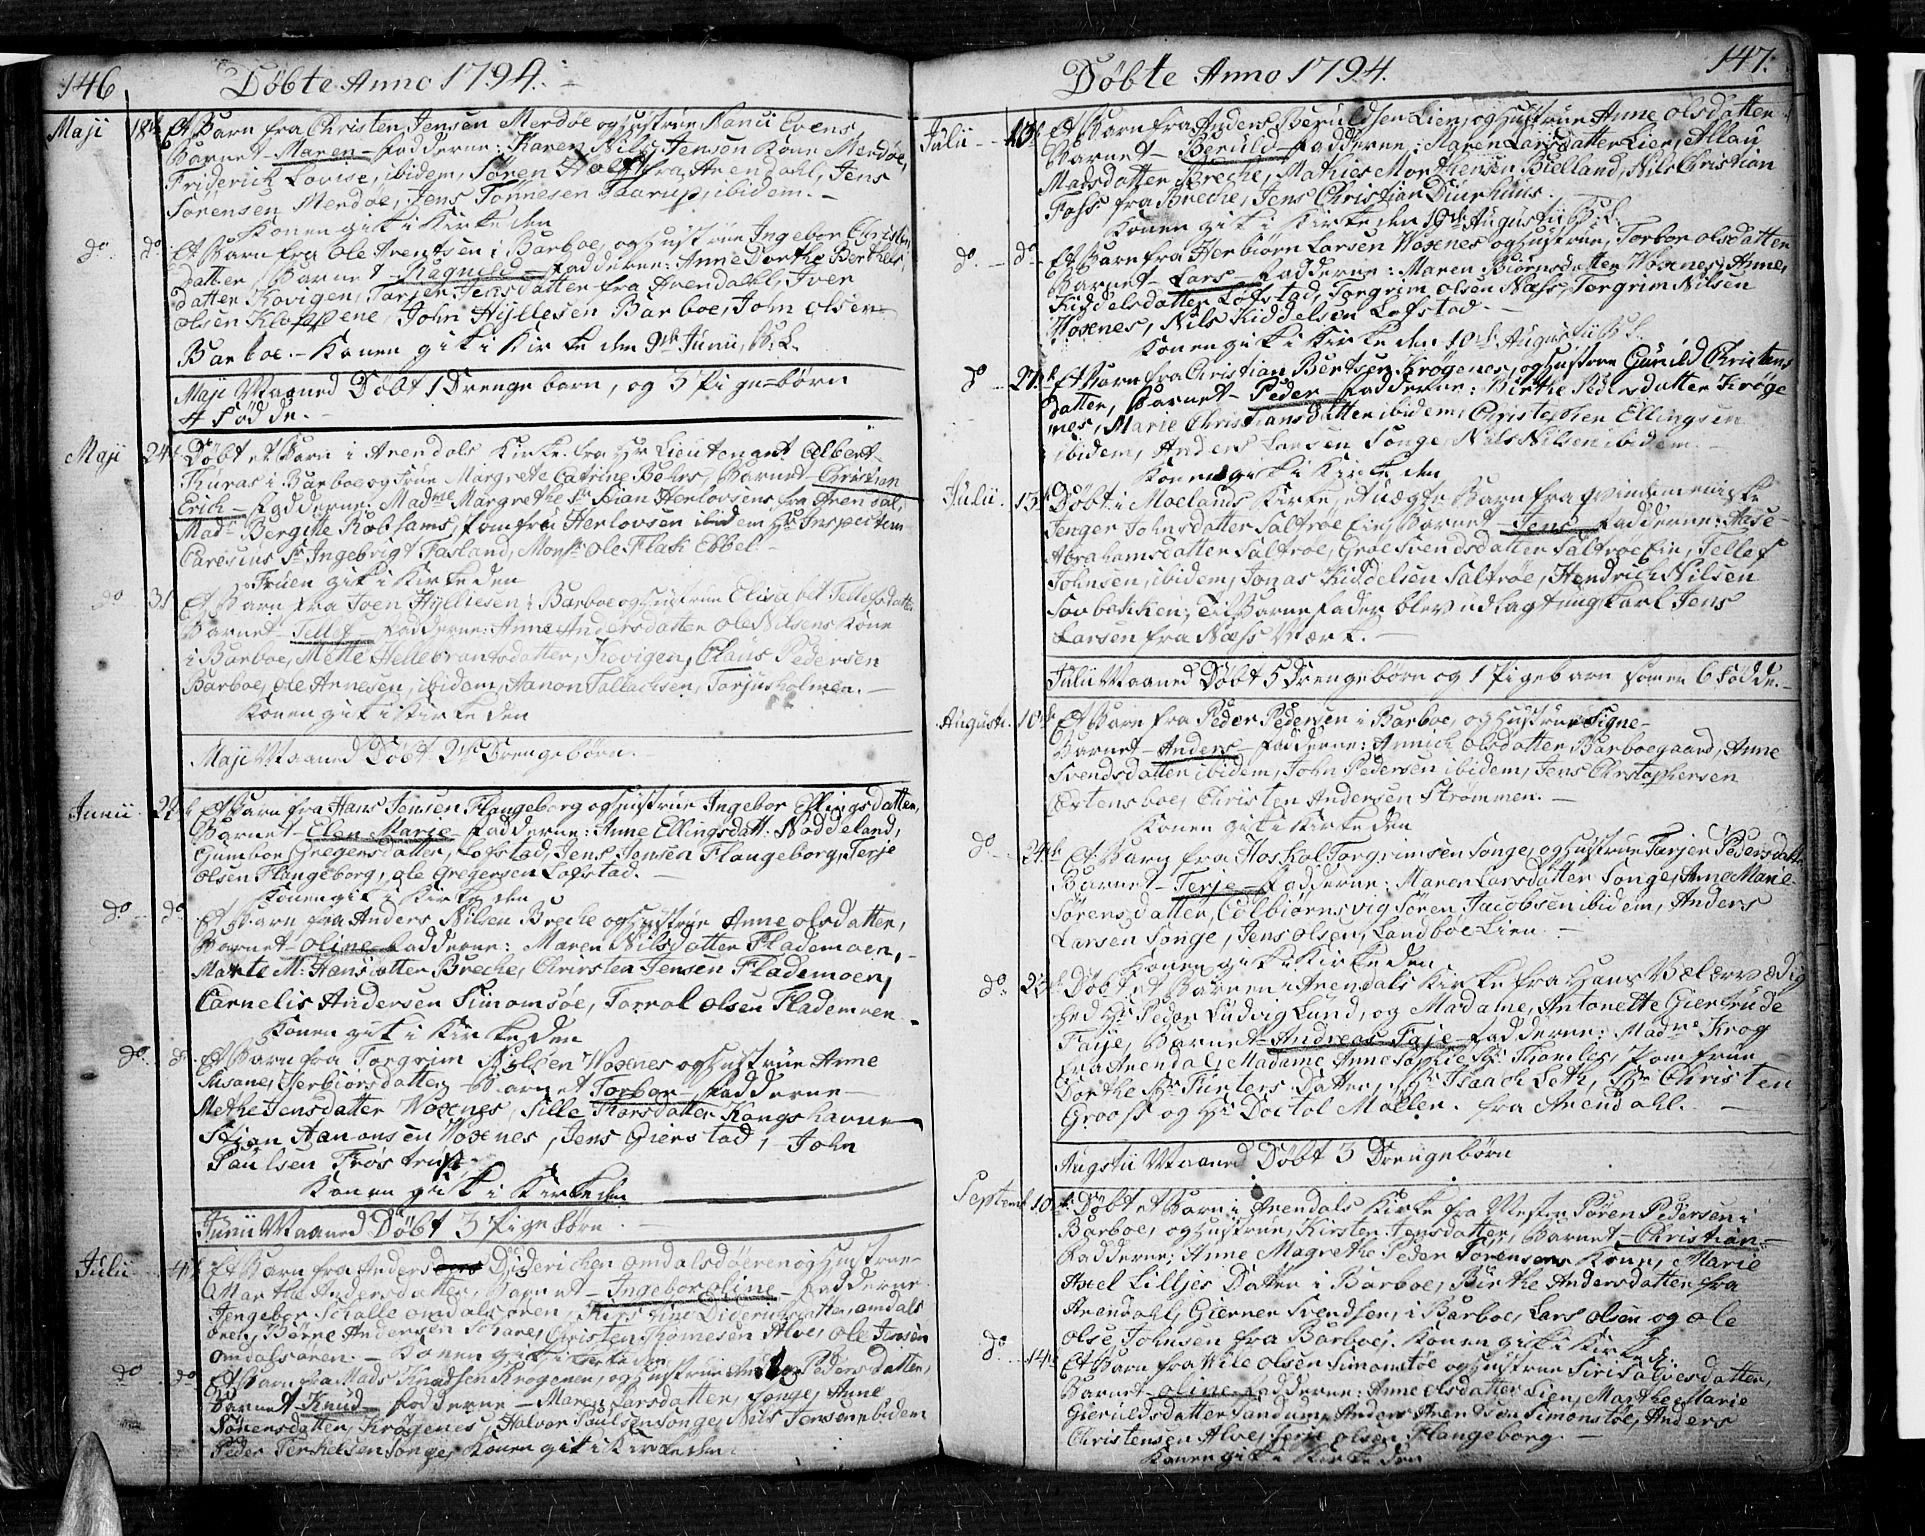 146
Döbte Anno 1794.
Maji 18de Et Barn fra Christen Jensen Merdöe og Hustrue Ranii Evens,
Barnet - Maren - Fadderne: Karen Nils Jenson Kone Merdöe,
Friderich Lovise, ibidem, Sören Holst fra Arendahl, Jens
Sörensen Merdöe, Jens Tönnesen Taarup, ibidem. -
Konen gik i Kirke den
do do Et Barn fra Ole Arentsen i Barboe, og Hustrue Ingebor Christens
datter, Barnet - Ragnild - Fadderne: Anne Dorthe Berthels
datter Kovigen, Tarjer Jensdatter fra Arendahl, Iver
Olsen Kloppene, John Hyllesen Barboe, John Olsen
Barboe. - Konen gik i Kirke den 9de Junii, B. L.
Maji Maaned Döbt 1 Drengebarn, og 3 Pigebörn
4 Födde. -
Maji 24 Döbt et Barn i Arendals Kirke fra Hr Lieutenant Albert
Kuras i Barboe og Frue Margrete Catrine Bohrs, Barnet - Christian
Erich - Fadderne: Madme Margrethe Sr Stian Herlovsens fra Grensdal,
Madm Bergitte Robsams, Jomfrue Herlovsen ibidem, Hr Inspecteur
Caresius Sr Ingebrigt Fasland, Monsr Ole Flak Ebbel -
Fruen gik i Kirke den
do 31 Et Barn fra Joen Hyllesen i Barboe og Hustrue Elisabet Tellefsdatter
Barnet - Tellef - Fadderne: Anne Andersdatter Ole Nilsens Kone
i Barboe, Mette Hellebrantsdatter, Kovigen, Claus Pedersen
Barboe, Ole Arnesen, ibidem, Aanon Tallachsen, Torjusholmen. -
Konen gik i Kirke den
Maji Maaned Döbt 2de Drengebörn.
Junii 22de Et Barn fra Hans Jensen Flangeborg og Hustrue Ingebor Ellingsdatter,
Barnet - Elen Marie - Fadderne: Anne Ellingsdatt: Nödeland,
Gumbor Gregersdatter, Lofstad, Jens Jensen Flangeborg, Terje
Olsen Flangeborg, Ole Gregersen Lofstad. -
Konen gik i Kirke den
do do Et Barn fra Anders Nilsen Breche og Hustrue Anne Olsdatter,
Barnet - Oline - Fadderne: Maren Nilsdatter Flademoen,
Marte M: Hansdatter Breche, Christen Jensen Flademoen,
Carnelis Andersen Simonsöe, Torrol Olsen Flademoen.
Konen gik i Kirke den
do d Et Barn fra Torgrim Nilsen Woxenes og Hustrue Anne
Susane, Herbiorsdatter, Barnet Torbor - Fadderne -
Methe Jensdatter Woxenes, Sille Thorsdatter Kongshavne
Stian Aanonsen Woxenes, Jens Gierstad, John
Paulsen Fröstrup
Konen gik i Kirke den
Junii Maaned Döbt 3 Pigebörn. -
Julii 4 Et Barn fra Anders Diderichsen Omdalsöeren og Hustrue
Marthe Andersdatter, Barnet - Ingebor Oline - Fadderne
Jengebor Schalle Omdalsören, Kirstine Diderichsdatter, Omdals
ören, Börne Andersen Schare, Christen Tommesen Alve, Ole Jensen
Omdalsören. - Konen gik i Kirke den
do do Et Barn fra Mads Knudsen Krogenes, og Hustrue Pedersdatter,
Barnet - Knud - Fadderne - Maren Larsdatter, Songe, Anne
Sörensdatter, Krogenes, Halvor Poulsen Songe, Nils Jensen ibidem
Peder Terkelsen Songe, Konen gik i Kirke den
147.
Döbte Anno 1794.
Julii 13de Et Barn fra Anders Beruldsen Lien, og Hustrue Anne Olsdatter
Barnet - Beruld - Fadderne: Maren Larsdatter Lien, Allau
Madsdatter, Breche, Mathies Morthensen Bielland, Nils Christian
Foss fra Breche, Jens Christian Duurhuus.
Konen gik i Kirke den 19de Augustii B: L.
do do Et Barn fra Herbiörn Larsen Woxenes og Hustrue, Torbor Olsdatter
Barnet - Lars - Fadderne: Maren Biörnsdatter Woxenes, Anne,
Kiddelsdatter Löfstad, Torgrim Olsen Næss, Torgrim Nilsen
Woxenes, Nils Kiddelsen Lofstad. -
Konen gik i Kirke den 10de Augustii B: L.
do 27 Et Barn fra Christian Bentsen Krögenes, og Hustrue Guruld Christens
datter, Barnet - Peder - Fadderne: Birthe Pedersdatter Kröge
nes, Marie Christiansdatter ibidem, Christopher Ellingsen
ibidem, Anders Larsen Songe, Nils Nilsen ibidem.
Konen gik i Kirke den
Julii 13 Döbt i Moelands Kirke, et uægte Barn fra Qvindemenniske
Jenger Johnsdatter Saltröe Eie, Barnet - Jens - Fadderne: Aase -
Abrahamsdatter Saltröe, Groe Svendsdatter Saltröe Eie, Tellef
Johnsen, ibidem, Jonas Kiddelsen Saltröe, Hendrich Nilsen
Sorbakken; Til Barnefader blev udlagt ungkarl Jens
Larsen fra Næss Værk. -
Julii Maaned Döbt 5 Drengebörn og 1 Pigebarn som er 6 Födde. -
Augusti 10de Et Barn fra Peder Pedersen i Barboe, og Hustrue Signe -
Barnet - Anders - Fadderne: Annich Olsdatter Barboegaard, Anne
Svendsdatter ibidem, John Pedersen ibidem, Jens Christophersen
Ertensboe, Christen Andersen Strömmen. -
Konen gik i Kirke den
do 24de Et Barn fra Hoskol Torgrimsen Songe, og Hustrue Tarjer Pedersdatter
Barnet - Terje - Fadderne: Maren Larsdatter Songe, Anne Marie
Sörensdatter, Colbiörnsvig Sören Jacobsen ibidem, Anders
Larsen Songe, Jens Olsen, Landböe Lien. -
Konen gik i Kirke den
do 23 Döbt et Barn i Arendals Kirke fra Hans Vælærværdig
hed Hr Peder Ludvig Lund, og Madame, Antonette Giertrude
Faye, Barnet - Andreas Faje - Fadderne: Madme Krog
fra Arendal, Madame Anne Sophie Sr: Thomles, Jomfrue
Dorthe Hr Fürsters Datter, Sr: Isaach Leth, Hr Christen
Grooss og Hr: Doctol Mollen. fra Arendahl. -
Augstii Maaned Döbt 3 Drengebörn
Septemb 10 Döbt et Barn i Arendals Kirke fra Mester Sören Pedersen i
Barboe, og Hustrue, Kirsten Jensdatter, Barnet - Christian -
Fadderne: Anne Magrethe Peder Sörensens Kone, Marie
Axel Lilljes Datter i Barboe, Birthe Andersdatter fra
Arendahl, Gierner Svendsen, i Barboe, Lars Olsen og Ole
Olse, Johnsen fra Barboe. Konen gik i Kirke
do 14 Et Barn fra Nile Olsen Simonstöe og Hustrue Siri Salvesdatter,
Barnet - Oline - Fadderne: Anne Olsdatter Lien, Marthe Marie
Gieruldsdatter Sandum, Anders Arentsen Simonstöe, Anders
Christensen Alve, Terje Olsen Flangeborg. -
Konen gik i Kirke den